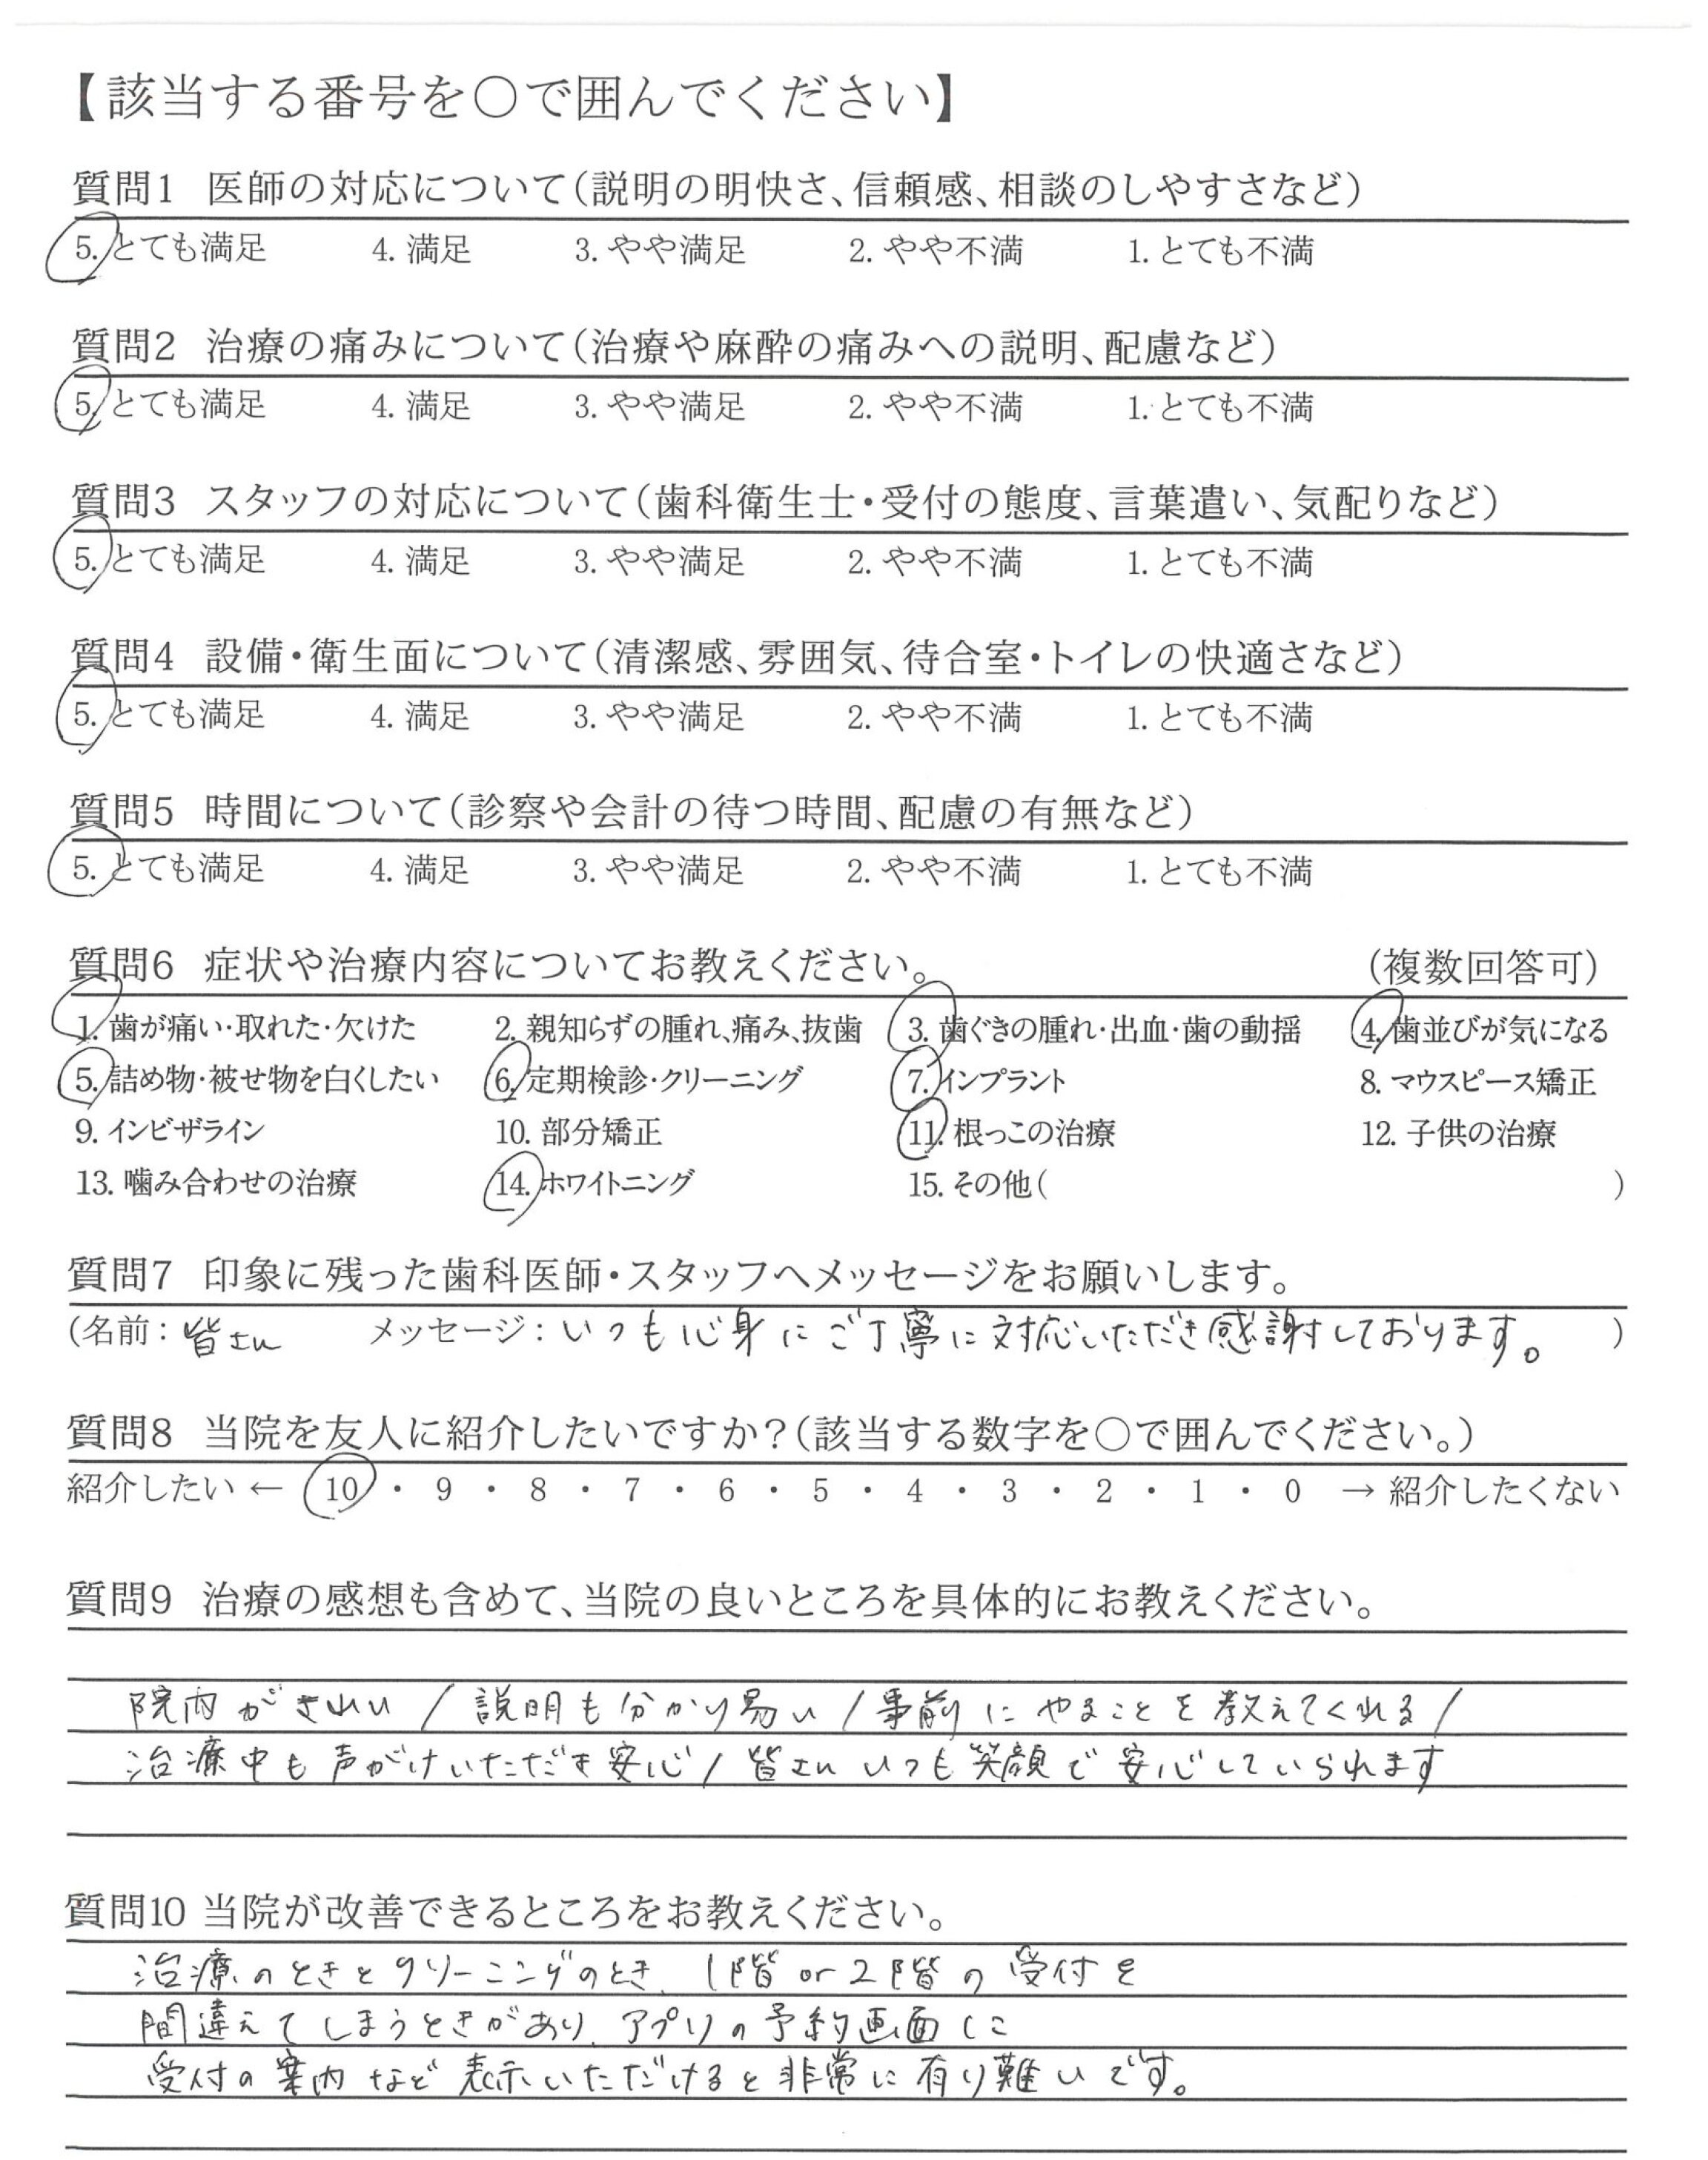 【該当する番号を〇で囲んでください】
質問1 医師の対応について(説明の明快さ、信頼感、相談のしやすさなど)
5. とても満足 4. 満足 3. やや満足 2. やや不満 1. とても不満
質問2 治療の痛みについて(治療や麻酔の痛みへの説明、配慮など)
5. とても満足 4. 満足 3. やや満足 2. やや不満 1. とても不満
質問3 スタッフの対応について(歯科衛生士・受付の態度、言葉遣い、気配りなど)
5. とても満足 4. 満足 3. やや満足 2. やや不満 1. とても不満
質問4 設備・衛生面について(清潔感、雰囲気、待合室・トイレの快適さなど)
5. とても満足 4. 満足 3. やや満足 2. やや不満 1. とても不満
質問5 時間について(診察や会計の待つ時間、配慮の有無など)
5. とても満足 4. 満足 3. やや満足 2. やや不満 1. とても不満
質問6 症状や治療内容についてお教えください。 (複数回答可)
1. 歯が痛い・取れた・欠けた 2. 親知らずの腫れ、痛み、抜歯 3. 歯ぐきの腫れ・出血・歯の動揺 4. 歯並びが気になる
5. 詰め物・被せ物を白くしたい 6. 定期検診・クリーニング 7. インプラント 8. マウスピース矯正
9. インビザライン 10. 部分矯正 11. 根っこの治療 12. 子供の治療
13. 噛み合わせの治療 14. ホワイトニング 15. その他( )
質問7 印象に残った歯科医師・スタッフへメッセージをお願いします。
(名前：皆さん メッセージ：いつも心身にご丁寧に対応いただき感謝しております。 )
質問8 当院を友人に紹介したいですか？(該当する数字を〇で囲んでください。)
紹介したい ← 10 ・ 9 ・ 8 ・ 7 ・ 6 ・ 5 ・ 4 ・ 3 ・ 2 ・ 1 ・ 0 → 紹介したくない
質問9 治療の感想も含めて、当院の良いところを具体的にお教えください。
院内がきれい / 説明も分かり易い / 事前にやることを教えてくれる /
治療中も声がけいただき安心 / 皆さんいつも笑顔で安心していられます
質問10 当院が改善できるところをお教えください。
治療のときとクリーニングのとき、1階 or 2階の受付を
間違えてしまうときがあり、アプリの予約画面に
受付の案内など表示いただけると非常に有り難いです。